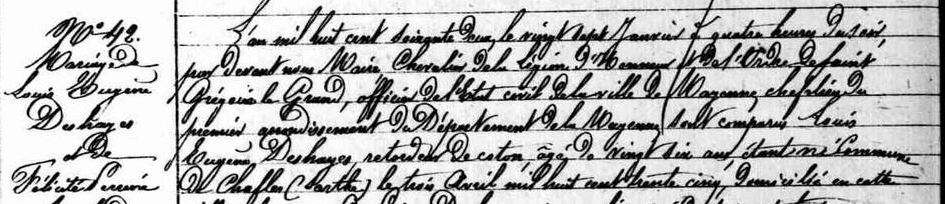 No 42.
Mariage de
Louis Eugène
Deshayes
et de
Félicité Perrine
L'an mil huit cent soixante deux, le vingt sept Janvier à quatre heures du soir,
par devant nous Maire Chevalier de la Légion d'Honneur et de l'Ordre de Saint
Grégoire le Grand, officier de l'Etat civil de la ville de Mayenne, chef lieu du
premier arrondissement du Département de la Mayenne, sont comparus Louis
Eugène Deshayes, retordeur de coton âgé de vingt six ans étant né Commune
de (Sarthe) le trois Avril mil huit cent trente cinq, domicilié en cette